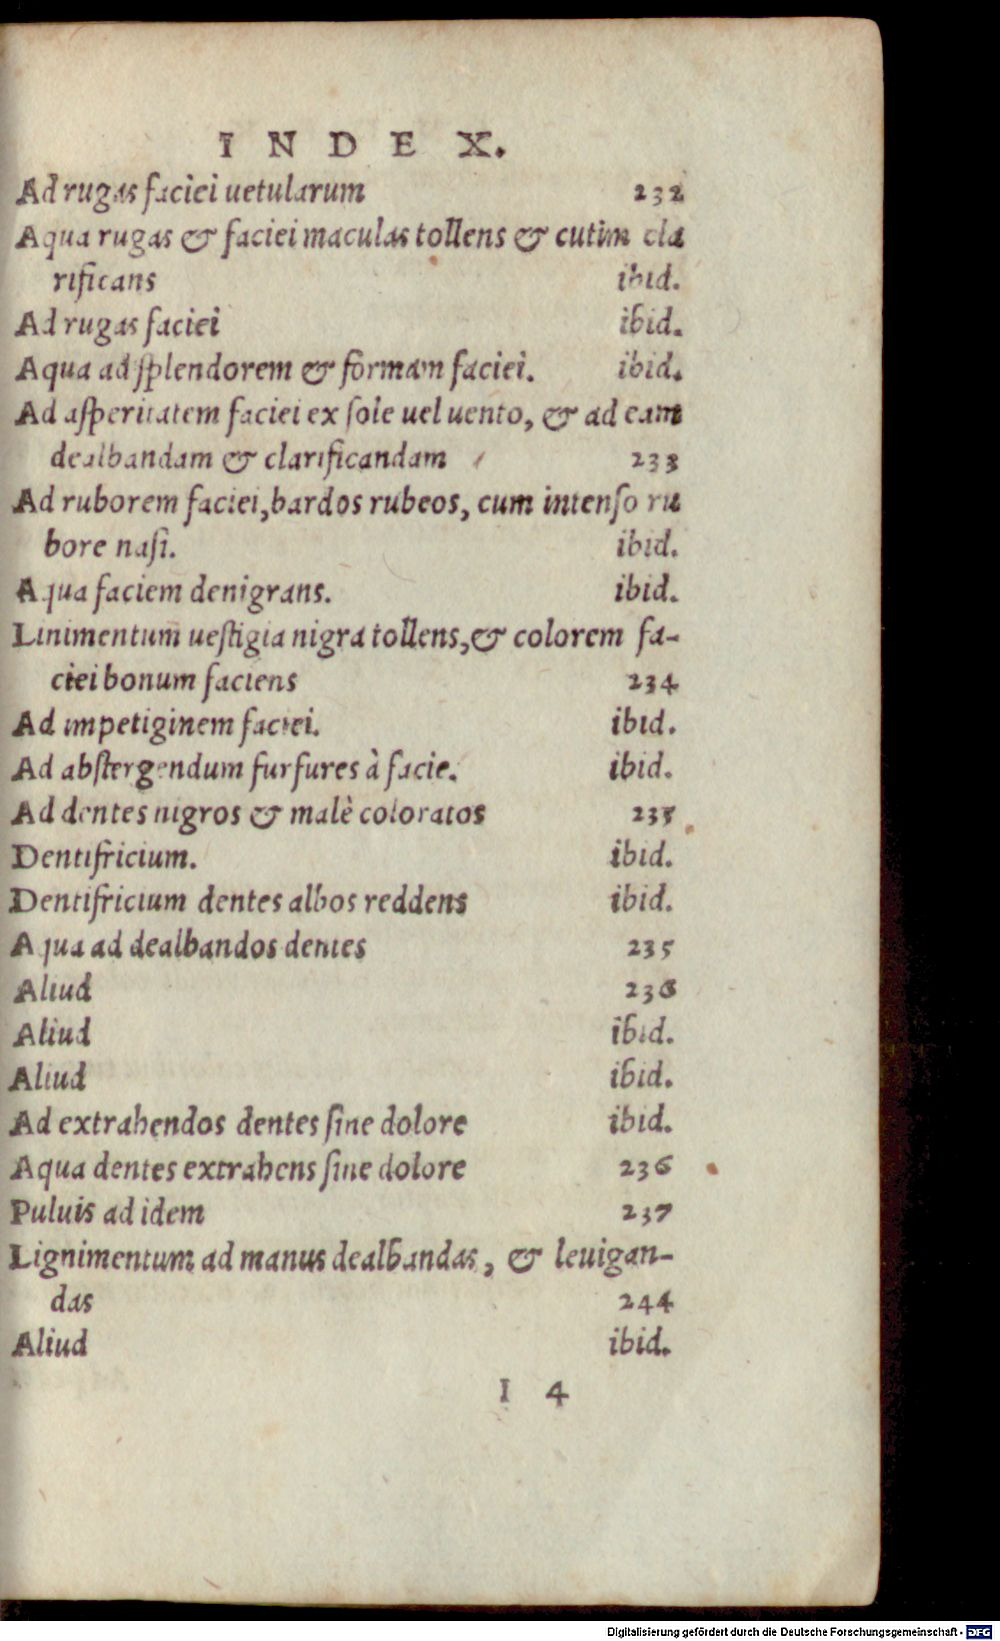 INDEX.
Ad rugas faciei uetularum 232
Aqua rugas & faciei maculas tollens & cutim cla
rificans ibid.
Ad rugas faciei ibid.
Aqua ad splendorem & formam faciei. ibid.
Ad asperitatem faciei ex sole uel uento, & ad eam
dealbandam & clarificandam 233
Ad ruborem faciei, bardos rubeos, cum intenso ru
bore nasi. ibid.
Aqua faciem denigrans. ibid.
Linimentum uestigia nigra tollens, & colorem fa-
ciei bonum faciens 234
Ad impetiginem faciei. ibid.
Ad abstergendum furfures à facie. ibid.
Ad dentes nigros & malè coloratos 235
Dentifricium. ibid.
Dentifricium dentes albos reddens ibid.
Aqua ad dealbandos dentes 235
Aliud 236
Aliud ibid.
Aliud ibid.
Ad extrahendos dentes sine dolore ibid.
Aqua dentes extrahens sine dolore 236
Puluis ad idem 237
Lignimentum ad manus dealbandas, & leuigan-
das 244
Aliud ibid.
I 4
Digitalisierung gefördert durch die Deutsche Forschungsgemeinschaft - DFG